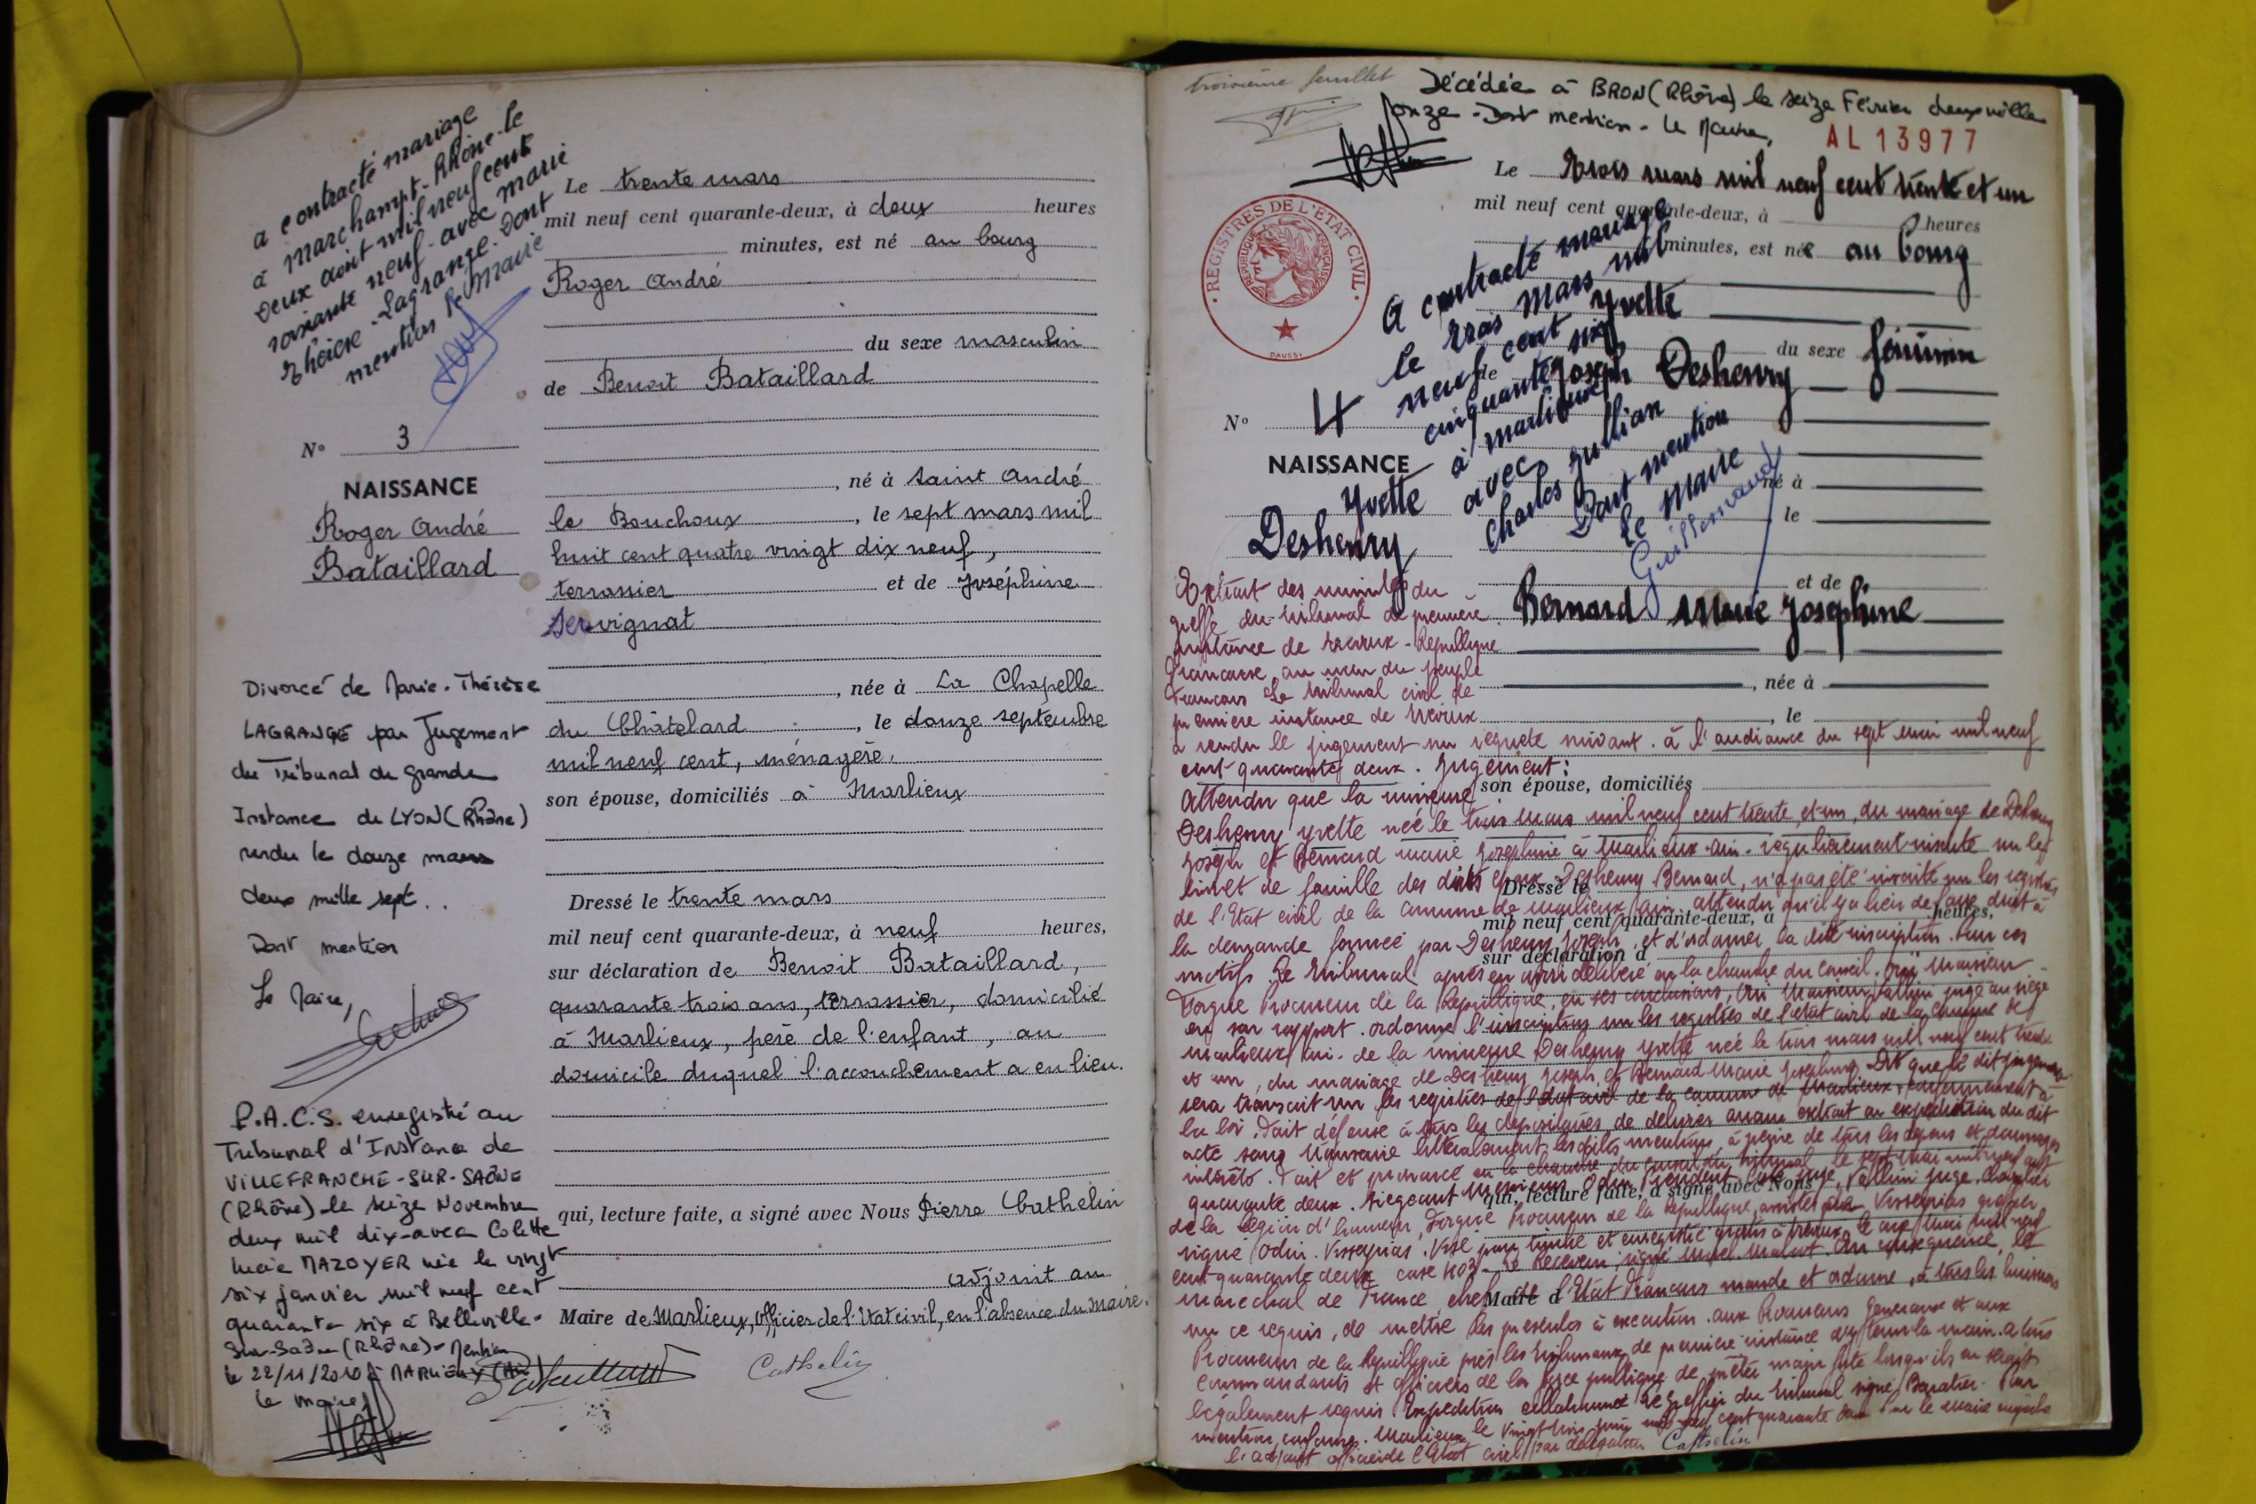 a contracté mariage
à Marchampt-Rhône-le
deux août mil neuf cent
soixante neuf avec Marie
Thérèse Lagrange. Dont
mention le Maire
N° 3
NAISSANCE
Roger André
Bataillard
Divorcé de Marie-Thérèse
LAGRANGE par Jugement
du Tribunal de Grande
Instance de LYON (Rhône)
rendu le douze mars
deux mille sept..
Dont mention
Le Maire,
P.A.C.S. enregistré au
Tribunal d'Instance de
VILLEFRANCHE-SUR-SAÔNE
(Rhône) le seize Novembre
deux mil dix avec Colette
Lucie MAZOYER née le vingt
six janvier mil neuf cent
quarante six à Belleville-
Sur-Saône (Rhône) - Mention
le 22/11/2010 à MARLIEUX (Ain)
le maire,
Le trente mars
mil neuf cent quarante-deux, à deux heures
minutes, est né au bourg
Roger André
du sexe masculin
de Benoit Bataillard
, né à Saint André
le Bouchoux, le sept mars mil
huit cent quatre vingt dix neuf,
terrassier et de Joséphine
Servignat
, née à La Chapelle
du Châtelard, le douze septembre
mil neuf cent, ménagère.
son épouse, domiciliés à Marlieux
Dressé le trente mars
mil neuf cent quarante-deux, à neuf heures,
sur déclaration de Benoit Bataillard,
quarante trois ans, terrassier, domicilié
à Marlieux, père de l'enfant, au
domicile duquel l'accouchement a eu lieu.
qui, lecture faite, a signé avec Nous Pierre Cathelin
adjoint au
Maire de Marlieux, Officier de l'Etat civil, en l'absence du Maire.
Cathelin
troisième feuillet
Décédée à BRON (Rhône) le seize Février deux mille
onze - Dont mention - Le Maire,
AL 13977
REGISTRES DE L'ETAT CIVIL
REPUBLIQUE FRANÇAISE
DAUSSI
Le trois mars mil neuf cent trente et un
mil neuf cent quarante-deux, à heures
minutes, est née au bourg
Yvette
du sexe féminin
de Joseph Deshenry
A contracté mariage
le trois Mars mil
neuf cent
cinquante six
à Marlieux
avec
Charles Jullian
Dont mention
Le Maire
Guillermaud
N° 4
NAISSANCE
Yvette
Deshenry
né à
le
et de
Bernard Marie Joséphine
, née à
, le
son épouse, domiciliés
Extrait des minutes du
greffe du tribunal de première
instance de Trévoux - République
Française au nom du peuple
Français Le tribunal civil de
première instance de Trévoux
a rendu le jugement sur requête suivant. à l'audience du sept mai mil neuf
cent quarante deux. Jugement:
Attendu que la mineure
Deshenry Yvette née le trois mars mil neuf cent trente et un, du mariage de Deshenry
Joseph et Bernard Marie Joséphine à Marlieux-Ain-régulièrement inscrite sur le
livret de famille des dits époux Deshenry Bernard, n'a pas été inscrite sur les registres
de l'Etat civil de la commune de Marlieux Ain. attendu qu'il y a lieu de faire droit à
la demande formée par Deshenry Joseph, et d'ordonner la dite inscription. Par ces
motifs. Le tribunal après en avoir délibéré en la chambre du conseil. Ouï Monsieur
Dorgue Procureur de la République, en ses conclusions, Ouï Monsieur Vallin juge au siège
en son rapport. ordonne l'inscription sur les registres de l'état civil de la commune de
Marlieux Ain. de la mineure Deshenry Yvette née le trois mars mil neuf cent trente
et un, du mariage de Deshenry Joseph et Bernard Marie Joséphine. Dit que le dit jugement
sera transcrit sur les registres de l'état civil de la commune de Marlieux, conformément à
la loi. Fait défense à tous les dépositaires de délivrer aucun extrait ou expédition du dit
acte sans transcrire littéralement les dites mentions, à peine de tous les dépens et dommages
intérêts. Fait et prononcé en la chambre du conseil du tribunal le sept mai mil neuf cent
quarante deux. Siégeant Messieurs Odin Président, juge, Vallin juge, chevalier
de la légion d'honneur, Dorgue Procureur de la République, assistés de greffier
signé Odin. Visé pour timbre et enregistré gratis à Trévoux le mai mil neuf
cent quarante deux case 1103 - Le Receveur, signé . En conséquence, le
Maréchal de France, chef de l'Etat Français mande et ordonne, à tous les huissiers
sur ce requis, de mettre les présentes à exécution. aux Procureurs Généraux et aux
Procureurs de la République près les tribunaux de première instance d'y tenir la main. à tous
commandants et officiers de la force publique de prêter main forte lorsqu'ils en seront
légalement requis. Expédition collationnée le greffier du tribunal signé Baratier. Pour
mention conforme. Marlieux le vingt trois juin mil neuf cent quarante deux le maire
l'adjoint officier de l'Etat civil par délégation Cathelin
Dressé le
mil neuf cent quarante-deux, à heures,
sur déclaration d
qui, lecture faite, a signé avec Nous
Maire d